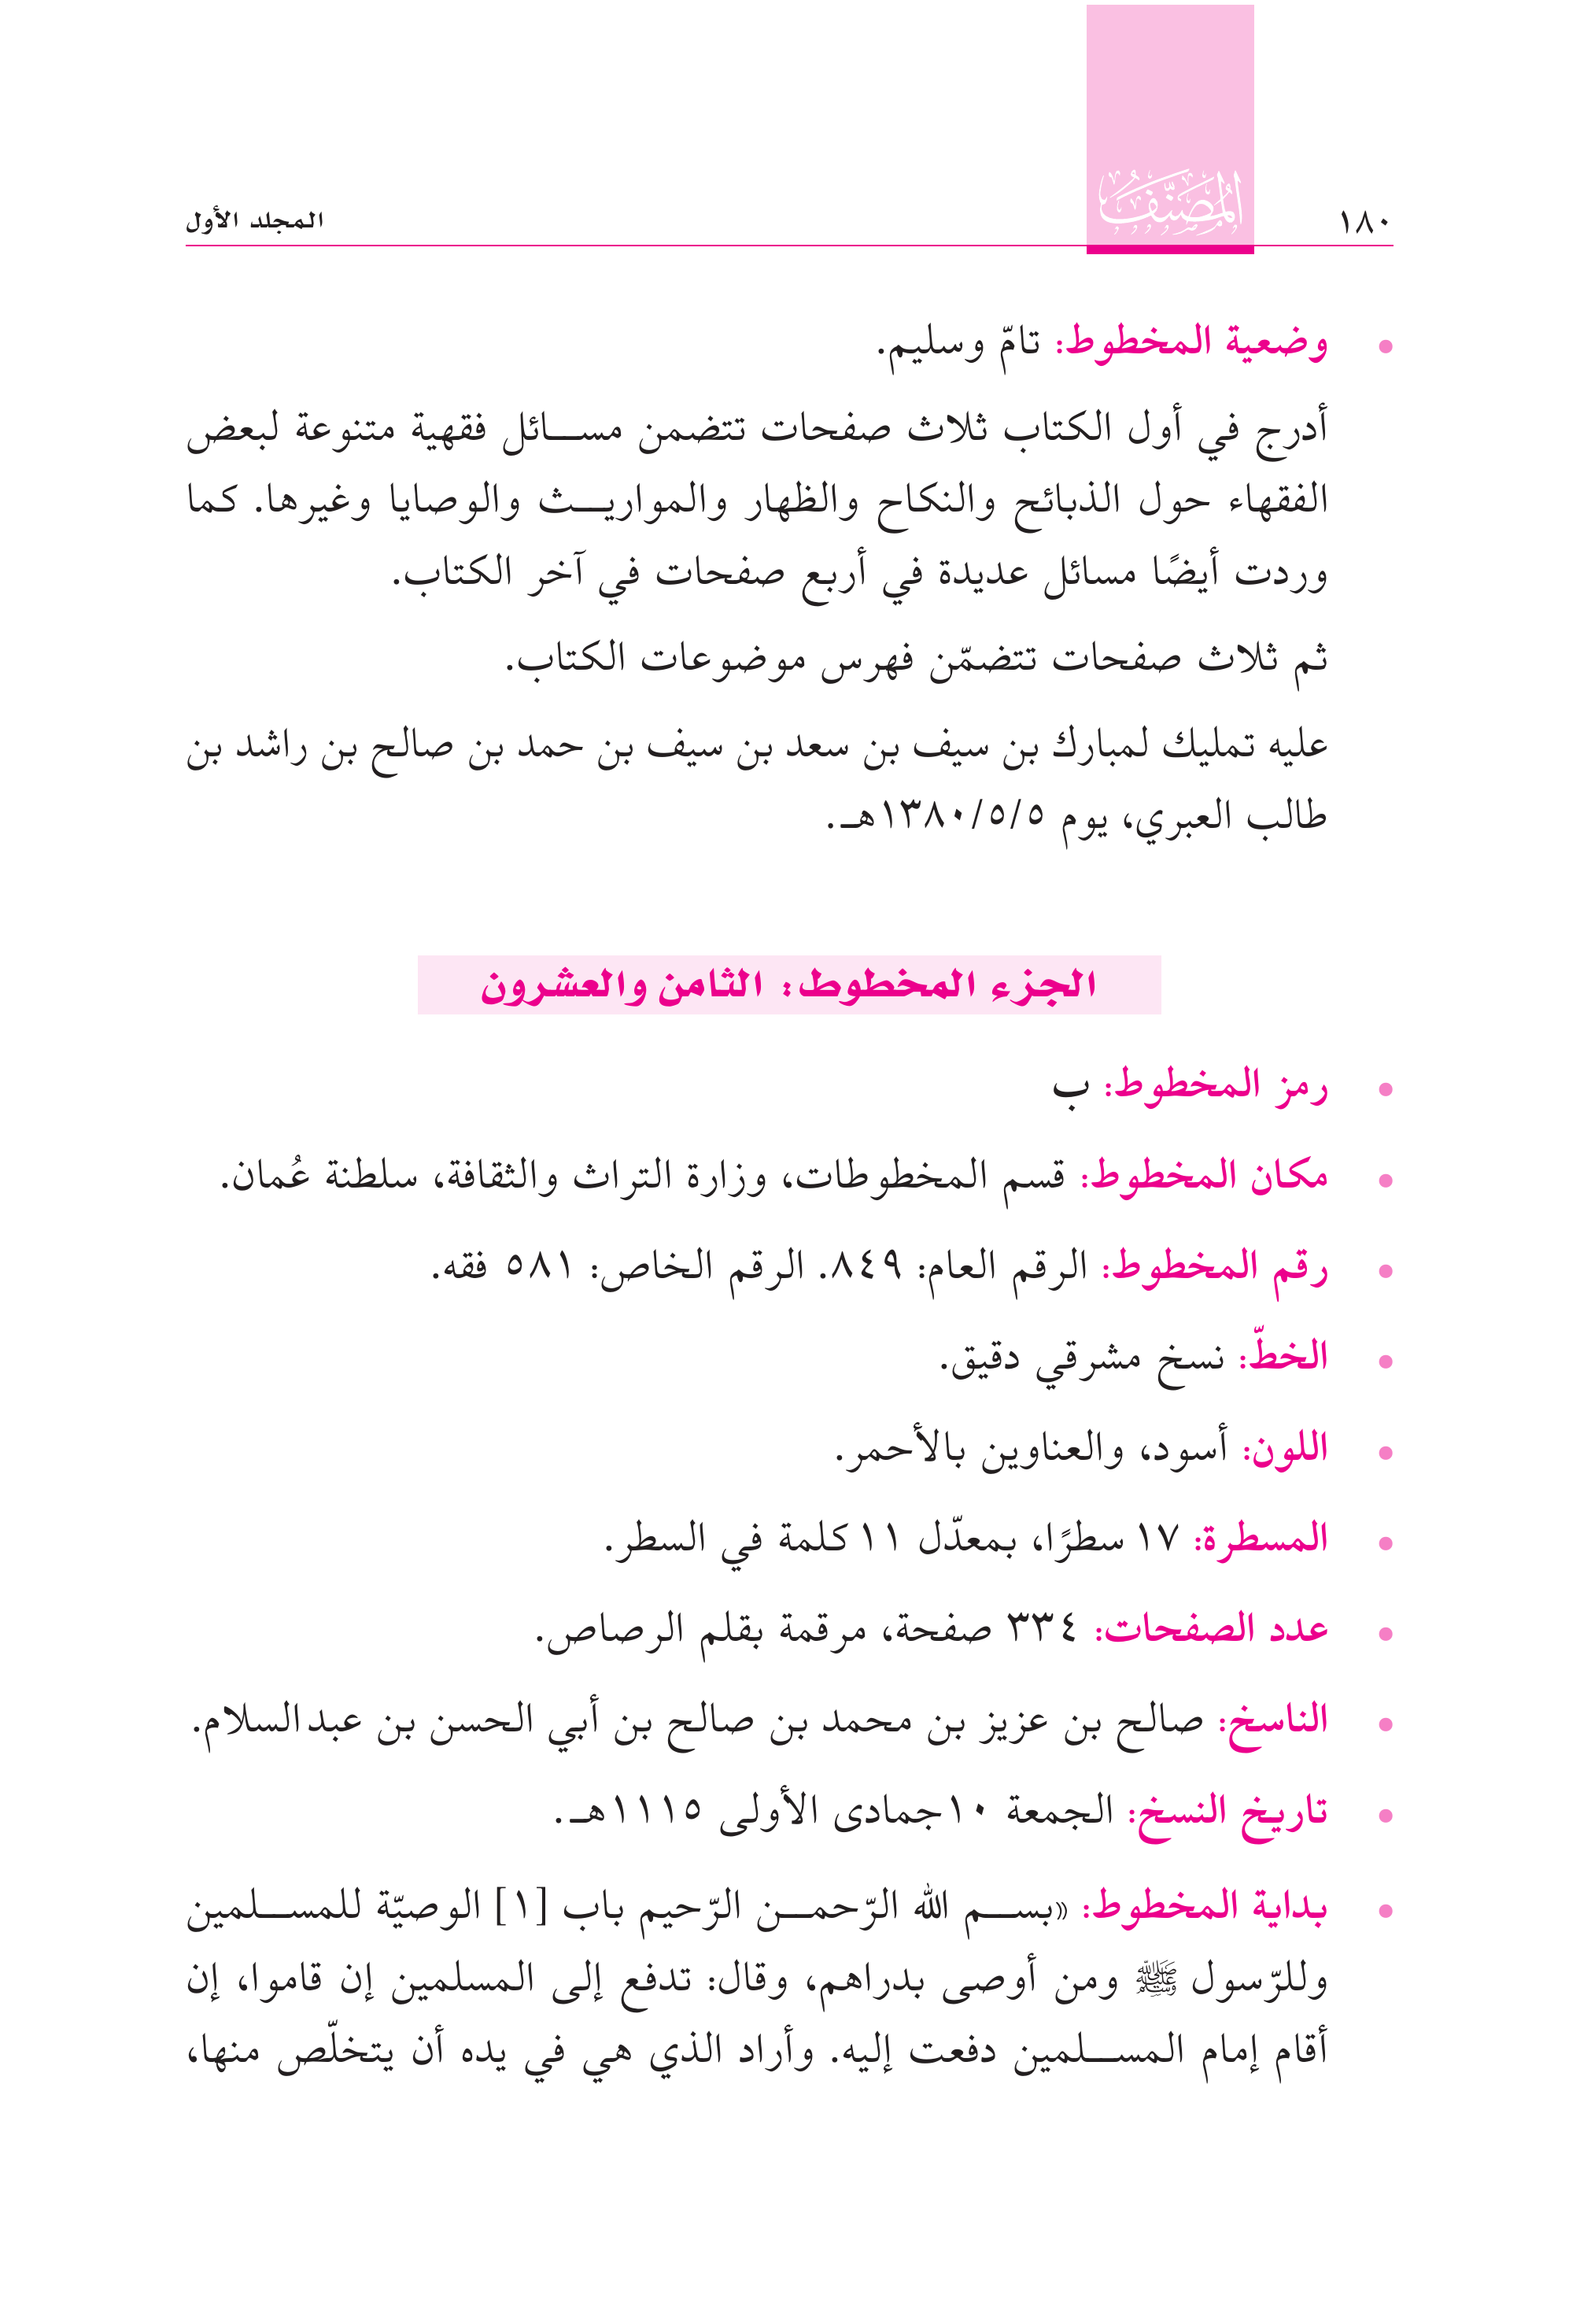 ١٨٠
المُصَنَّفُ
المجلد الأول
• وضعية المخطوط: تامّ وسليم.
أدرج في أول الكتاب ثلاث صفحات تتضمن مســائل فقهية متنوعة لبعض
الفقهاء حول الذبائح والنكاح والظهار والمواريــث والوصايا وغيرها. كما
وردت أيضًا مسائل عديدة في أربع صفحات في آخر الكتاب.
ثم ثلاث صفحات تتضمّن فهرس موضوعات الكتاب.
عليه تمليك لمبارك بن سيف بن سعد بن سيف بن حمد بن صالح بن راشد بن
طالب العبري، يوم ١٣٨٠/٥/٥هـ.
الجزء المخطوط: الثامن والعشرون
• رمز المخطوط: ب
• مكان المخطوط: قسم المخطوطات، وزارة التراث والثقافة، سلطنة عُمان.
• رقم المخطوط: الرقم العام: ٨٤٩. الرقم الخاص: ٥٨١ فقه.
• الخطّ: نسخ مشرقي دقيق.
• اللون: أسود، والعناوين بالأحمر.
• المسطرة: ١٧ سطرًا، بمعدّل ١١ كلمة في السطر.
• عدد الصفحات: ٣٣٤ صفحة، مرقمة بقلم الرصاص.
• الناسخ: صالح بن عزيز بن محمد بن صالح بن أبي الحسن بن عبدالسلام.
• تاريخ النسخ: الجمعة ١٠جمادى الأولى ١١١٥هـ.
• بداية المخطوط: «بســم الله الرّحمــن الرّحيم باب [١] الوصيّة للمســلمين
وللرّسول ﷺ ومن أوصى بدراهم، وقال: تدفع إلى المسلمين إن قاموا، إن
أقام إمام المســلمين دفعت إليه. وأراد الذي هي في يده أن يتخلّص منها،